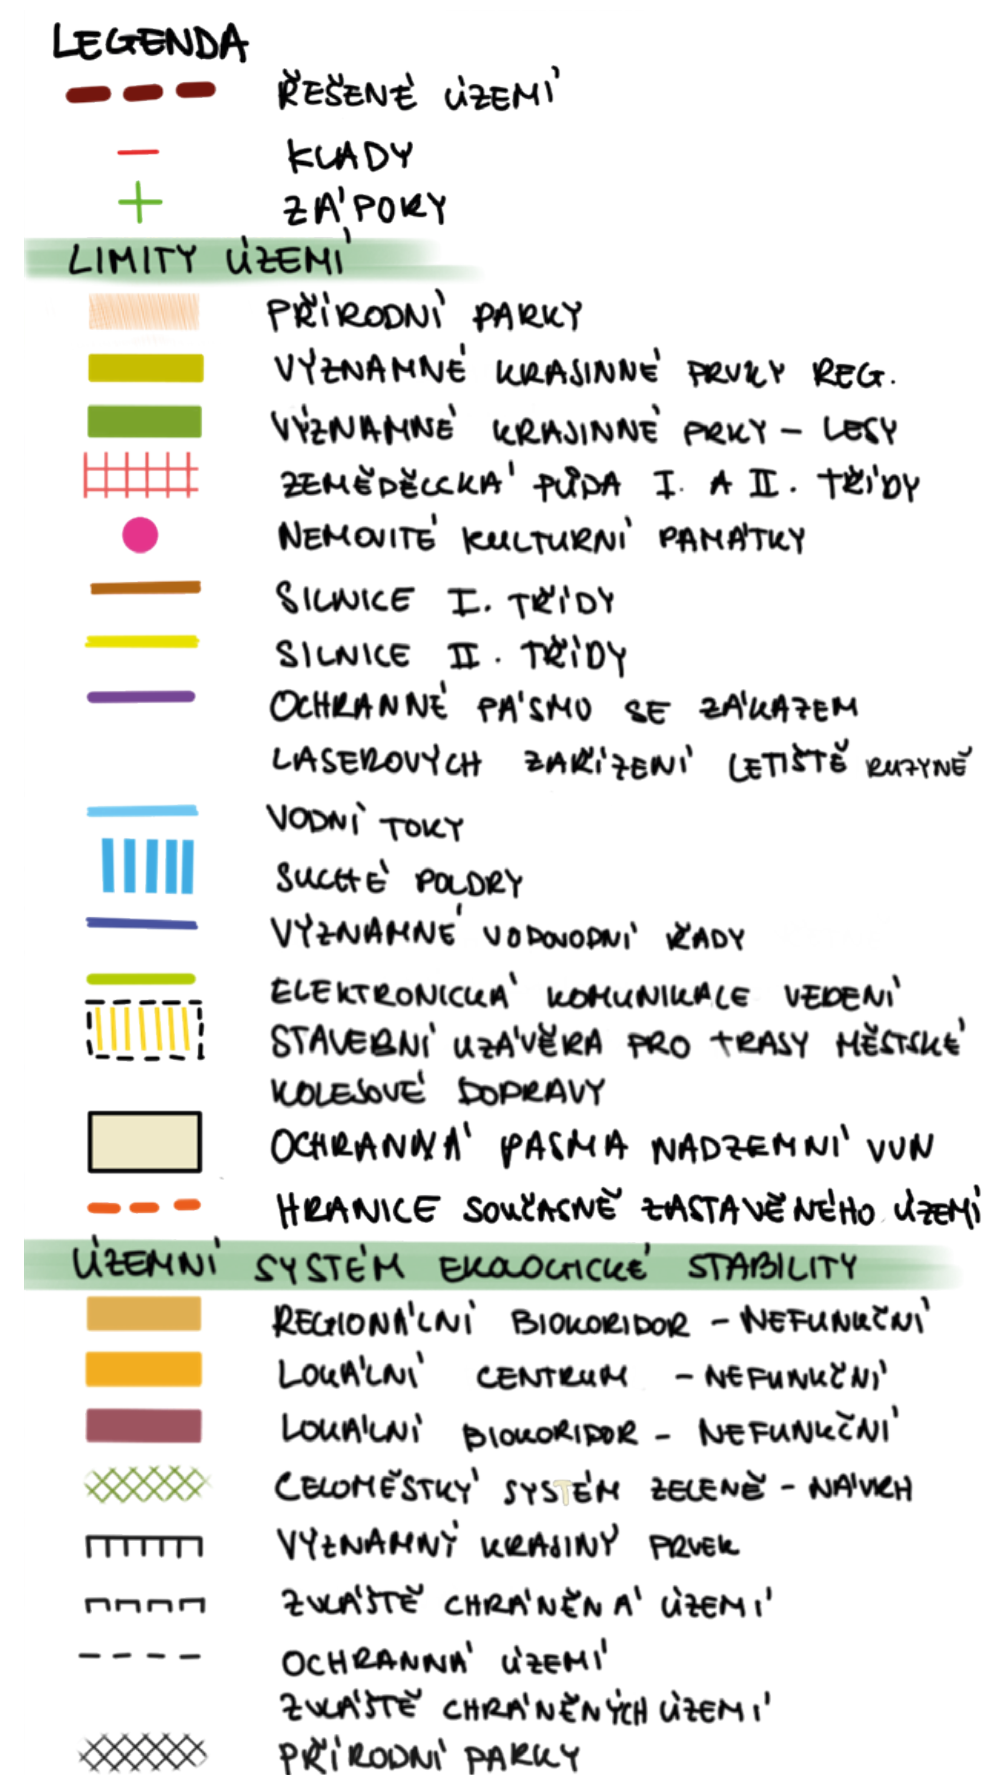 LEGENDA
ŘEŠENÉ ÚZEMÍ
KLADY
ZÁPORY
LIMITY ÚZEMÍ
PŘÍRODNÍ PARKY
VÝZNAMNÉ KRAJINNÉ PRVKY REG.
VÝZNAMNÉ KRAJINNÉ PRKY - LESY
ZEMĚDĚLCKÁ PŮDA I. A II. TŘÍDY
NEMOVITÉ KULTURNÍ PAMÁTKY
SILNICE I. TŘÍDY
SILNICE II. TŘÍDY
OCHRANNÉ PÁSMO SE ZÁKAZEM
LASEROVÝCH ZAŘÍZENÍ LETIŠTĚ RUZYNĚ
VODNÍ TOKY
SUCHÉ POLDRY
VÝZNAMNÉ VODOVODNÍ ŘADY
ELEKTRONICKÁ KOMUNIKACE VEDENÍ
STAVEBNÍ UZÁVĚRA PRO TRASY MĚSTSKÉ
KOLEJOVÉ DOPRAVY
OCHRANNÁ PASMA NADZEMNÍ VVN
HRANICE SOUČASNĚ ZASTAVĚNÉHO ÚZEMÍ
ÚZEMNÍ SYSTÉM EKOLOGICKÉ STABILITY
REGIONÁLNÍ BIOKORIDOR - NEFUNKČNÍ
LOKÁLNÍ CENTRUM - NEFUNKČNÍ
LOKÁLNÍ BIOKORIDOR - NEFUNKČNÍ
CELOMĚSTKÝ SYSTÉM ZELENĚ - NÁVRH
VÝZNAMNÝ KRAJINY PRVEK
ZVLÁŠTĚ CHRÁNĚNÁ ÚZEMÍ
OCHRANNÁ ÚZEMÍ
ZVLÁŠTĚ CHRÁNĚNÝCH ÚZEMÍ
PŘÍRODNÍ PARKY